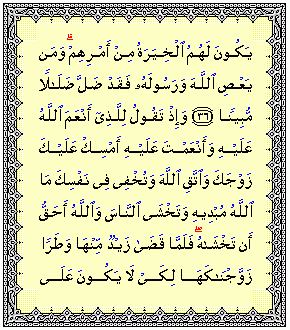 يَكُونَ لَهُمُ ٱلْخِيَرَةُ مِنْ أَمْرِهِمْ ۗ وَمَن
يَعْصِ ٱللَّهَ وَرَسُولَهُۥ فَقَدْ ضَلَّ ضَلَـٰلًا
مُّبِينًا ﴿٣٦﴾ وَإِذْ تَقُولُ لِلَّذِىٓ أَنْعَمَ ٱللَّهُ
عَلَيْهِ وَأَنْعَمْتَ عَلَيْهِ أَمْسِكْ عَلَيْكَ
زَوْجَكَ وَٱتَّقِ ٱللَّهَ وَتُخْفِى فِى نَفْسِكَ مَا
ٱللَّهُ مُبْدِيهِ وَتَخْشَى ٱلنَّاسَ وَٱللَّهُ أَحَقُّ
أَن تَخْشَىٰهُ ۖ فَلَمَّا قَضَىٰ زَيْدٌ مِّنْهَا وَطَرًا
زَوَّجْنَـٰكَهَا لِكَىْ لَا يَكُونَ عَلَى